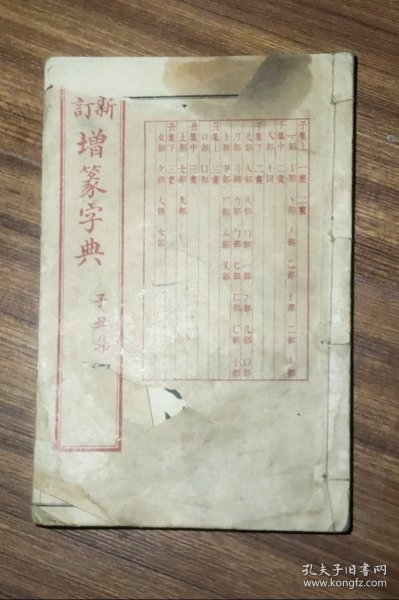 子集上 一畫 二畫
一部 丨部 丶部 丿部 乙部 亅部 二部 亠部
子集中 二畫
人部 亻同
子集下 二畫
儿部 入部 八部 冂部 冖部 冫部 几部 凵部
刀部 刂同 力部 勹部 匕部 匚部 匸部 十部
卜部 卩部 厂部 厶部 又部
丑集上 三畫
口部 囗部
丑集中 三畫
土部 士部 夂部
丑集下 三畫
夊部 夕部 大部 女部
新訂
增篆字典
子丑集
孔夫子旧书网
www.kongfz.com